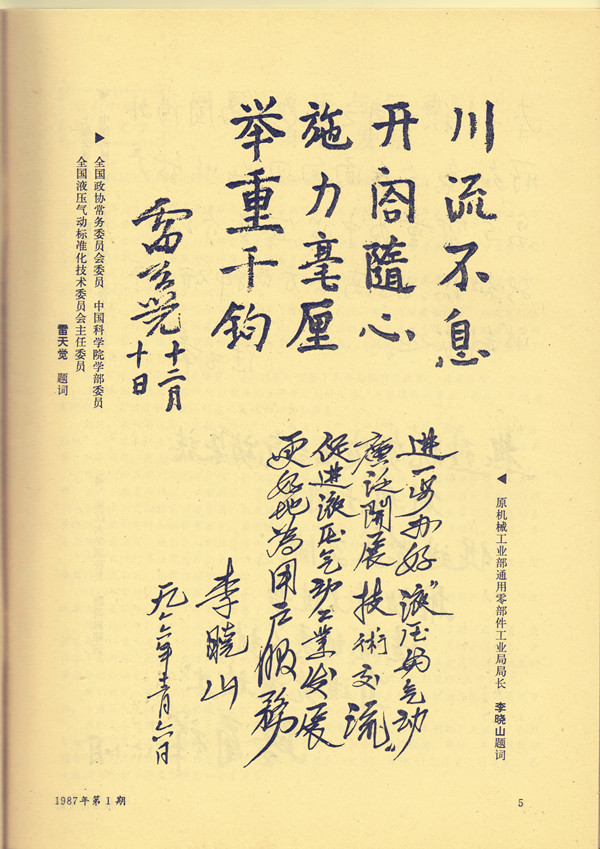 川流不息
开阁隨心
施力毫厘
举重千钧
雷天觉
十二月
十日
▶ 全国政协常务委员会委员 中国科学院学部委员
全国液压气动标准化技术委员会主任委员
雷天觉 题词
◀ 原机械工业部通用零部件工业局局长 李晓山题词
进一步办好“液压与气动”
广泛開展技術交流
促进液压气动工业发展
更好地为用户服務
李晓山
一九八六年十一月六日
1987年第1期
5